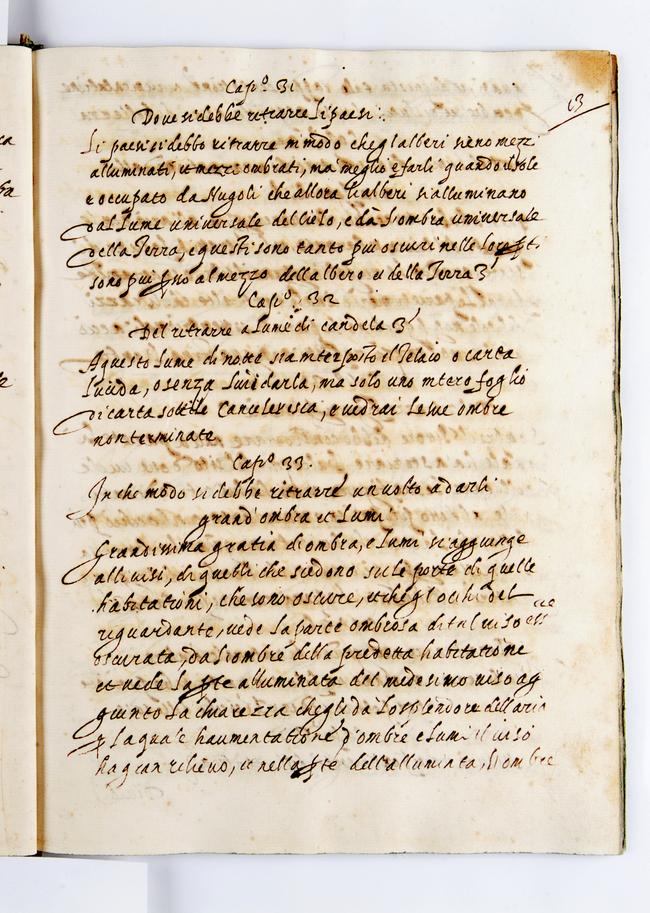 13
Cap.º 31
Dove si debbe ritrarre li paesi.
Li paesi si debbo ritrarre in modo che gl'alberi sieno mezzi
alluminati, et mezzi ombrati, ma meglio è farli quando il sole
e occupato da Nugoli che allora li alberi si alluminano
dal Lume universale del cielo, e dà l'ombra universale
della Terra, e questi sono tanto piu oscuri nelle lor
sono piu al mezzo dell albero e della Terra
Cap.º 32
Del ritrarre a lume di candela
A questo Lume di notte sia interposto il Telaio o carta
Lucida, o senza lucidarla, ma solo uno intero foglio
di carta sottile Cancelleresca, e vedrai le sue ombre
non terminate
Cap.º 33.
In che modo si debbe ritrarre un volto a darli
grand'ombra et Lumi
Grandissima gratia di ombra, e Lumi si aggiunge
alli visi, di quelli che siedono su le porte di quelle
habitationi, che sono oscure, et che gl'ochi del
riguardante, vede la parte ombrosa di tal viso
oscurata, da l'ombre della predetta habitatione
et vede la pte alluminata del medesimo viso ag
giunto la chiarezza che gli da Lo splendore dell aria
p la quale haumentatione d'ombre e lumi il viso
ha gran rilievo, et nella pte dell'alluminata, l'ombre